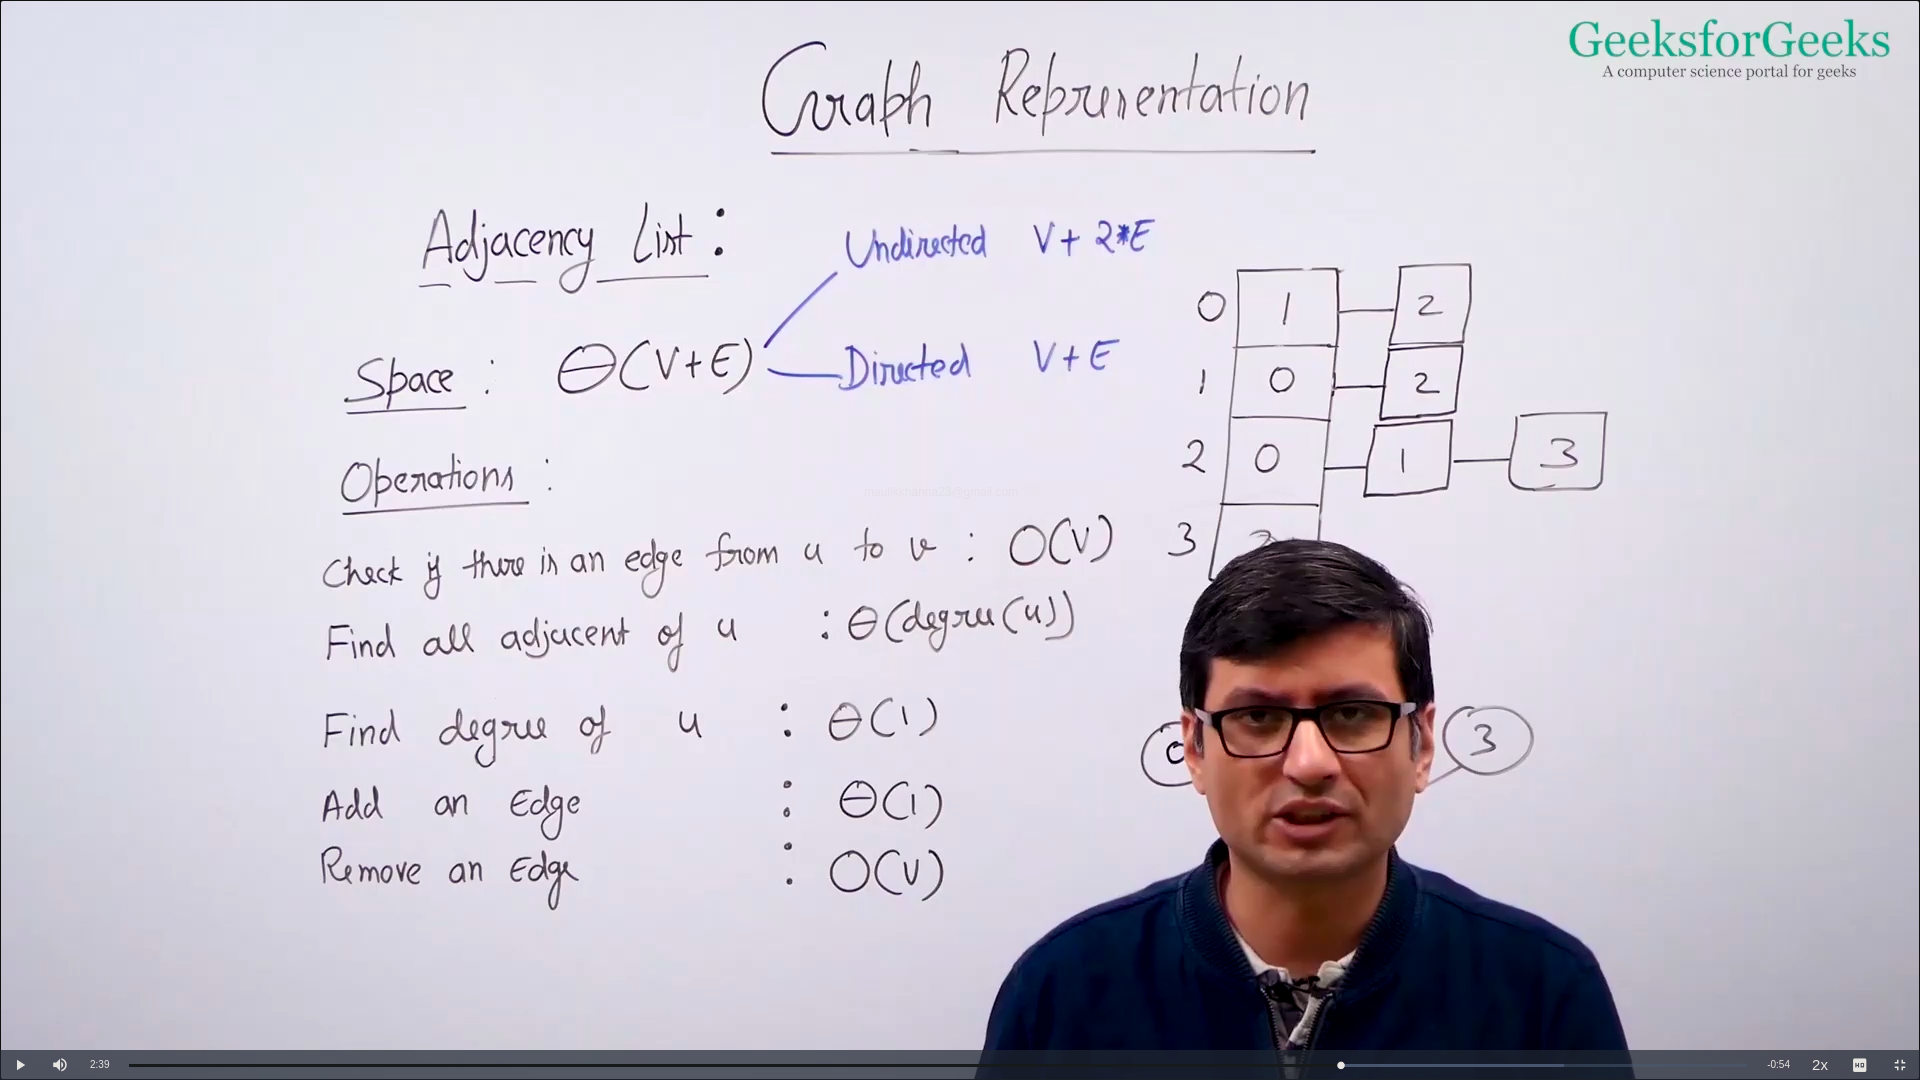 GeeksforGeeks
A computer science portal for geeks
Graph Representation
Adjacency List :
Undirected V + 2*E
Space : Θ(V+E)
Directed V+E
0 1 2
1 0 2
2 0 1 3
3
Operations :
Check if there is an edge from u to v : O(V)
Find all adjacent of u : Θ(degree(u))
Find degree of u : Θ(1)
Add an Edge : Θ(1)
Remove an Edge : O(V)
0 3
2:39 -0:54 2x HD